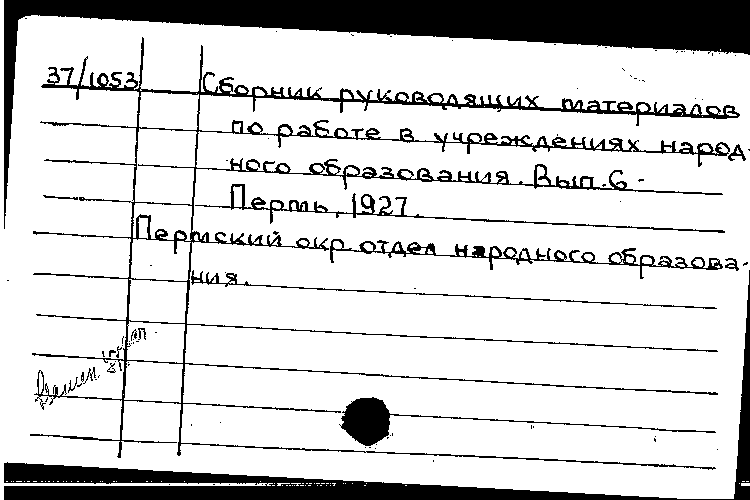 37/1053 Сборник руководящих материалов
по работе в учреждениях народ-
ного образования. Вып.6-
Пермь, 1927.
Пермский окр. отдел народного образова-
ния.